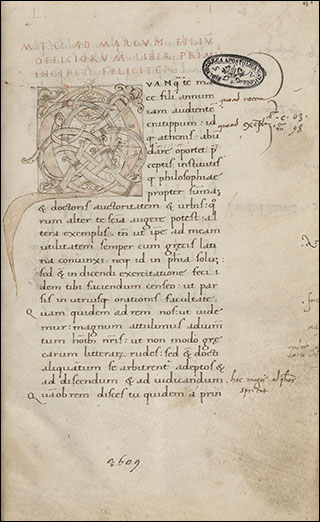 L
M·T·C· AD MARCVM FILIV
OFFICIORVM LIBER PRIMV
INCIPIT FELICITER
VAMQ̃ te mar
ce fili annum
iam audiente
cratippum: id
q; athenis abū
dare oportet p̄
ceptis institutis
q; philosophiae
propter sūmā
& doctoris auctoritatem & urbis: q
rum alter te scīa augere potest: al
tera exemplis. tm̄ ut ipē ad meam
utilitatem semper cum grecis lati
na coniunxi: neq; id in phīa solū;
sed & in dicendi exercitatione feci: i
dem tibi faciendum censeo: ut par
sis in utriusq; orationis facultate.
Quam quidem ad rem nos: ut uide
mur: magnum attulimus adium
tum hoībꝰ nr̄is: ut non modo gre
carum litterarꝝ rudes: sed & docti
aliquātum se arbitrent̄ adeptos &
ad discendum & ad iudicandum.
Quāobrem disces tu quidem a prin
3609